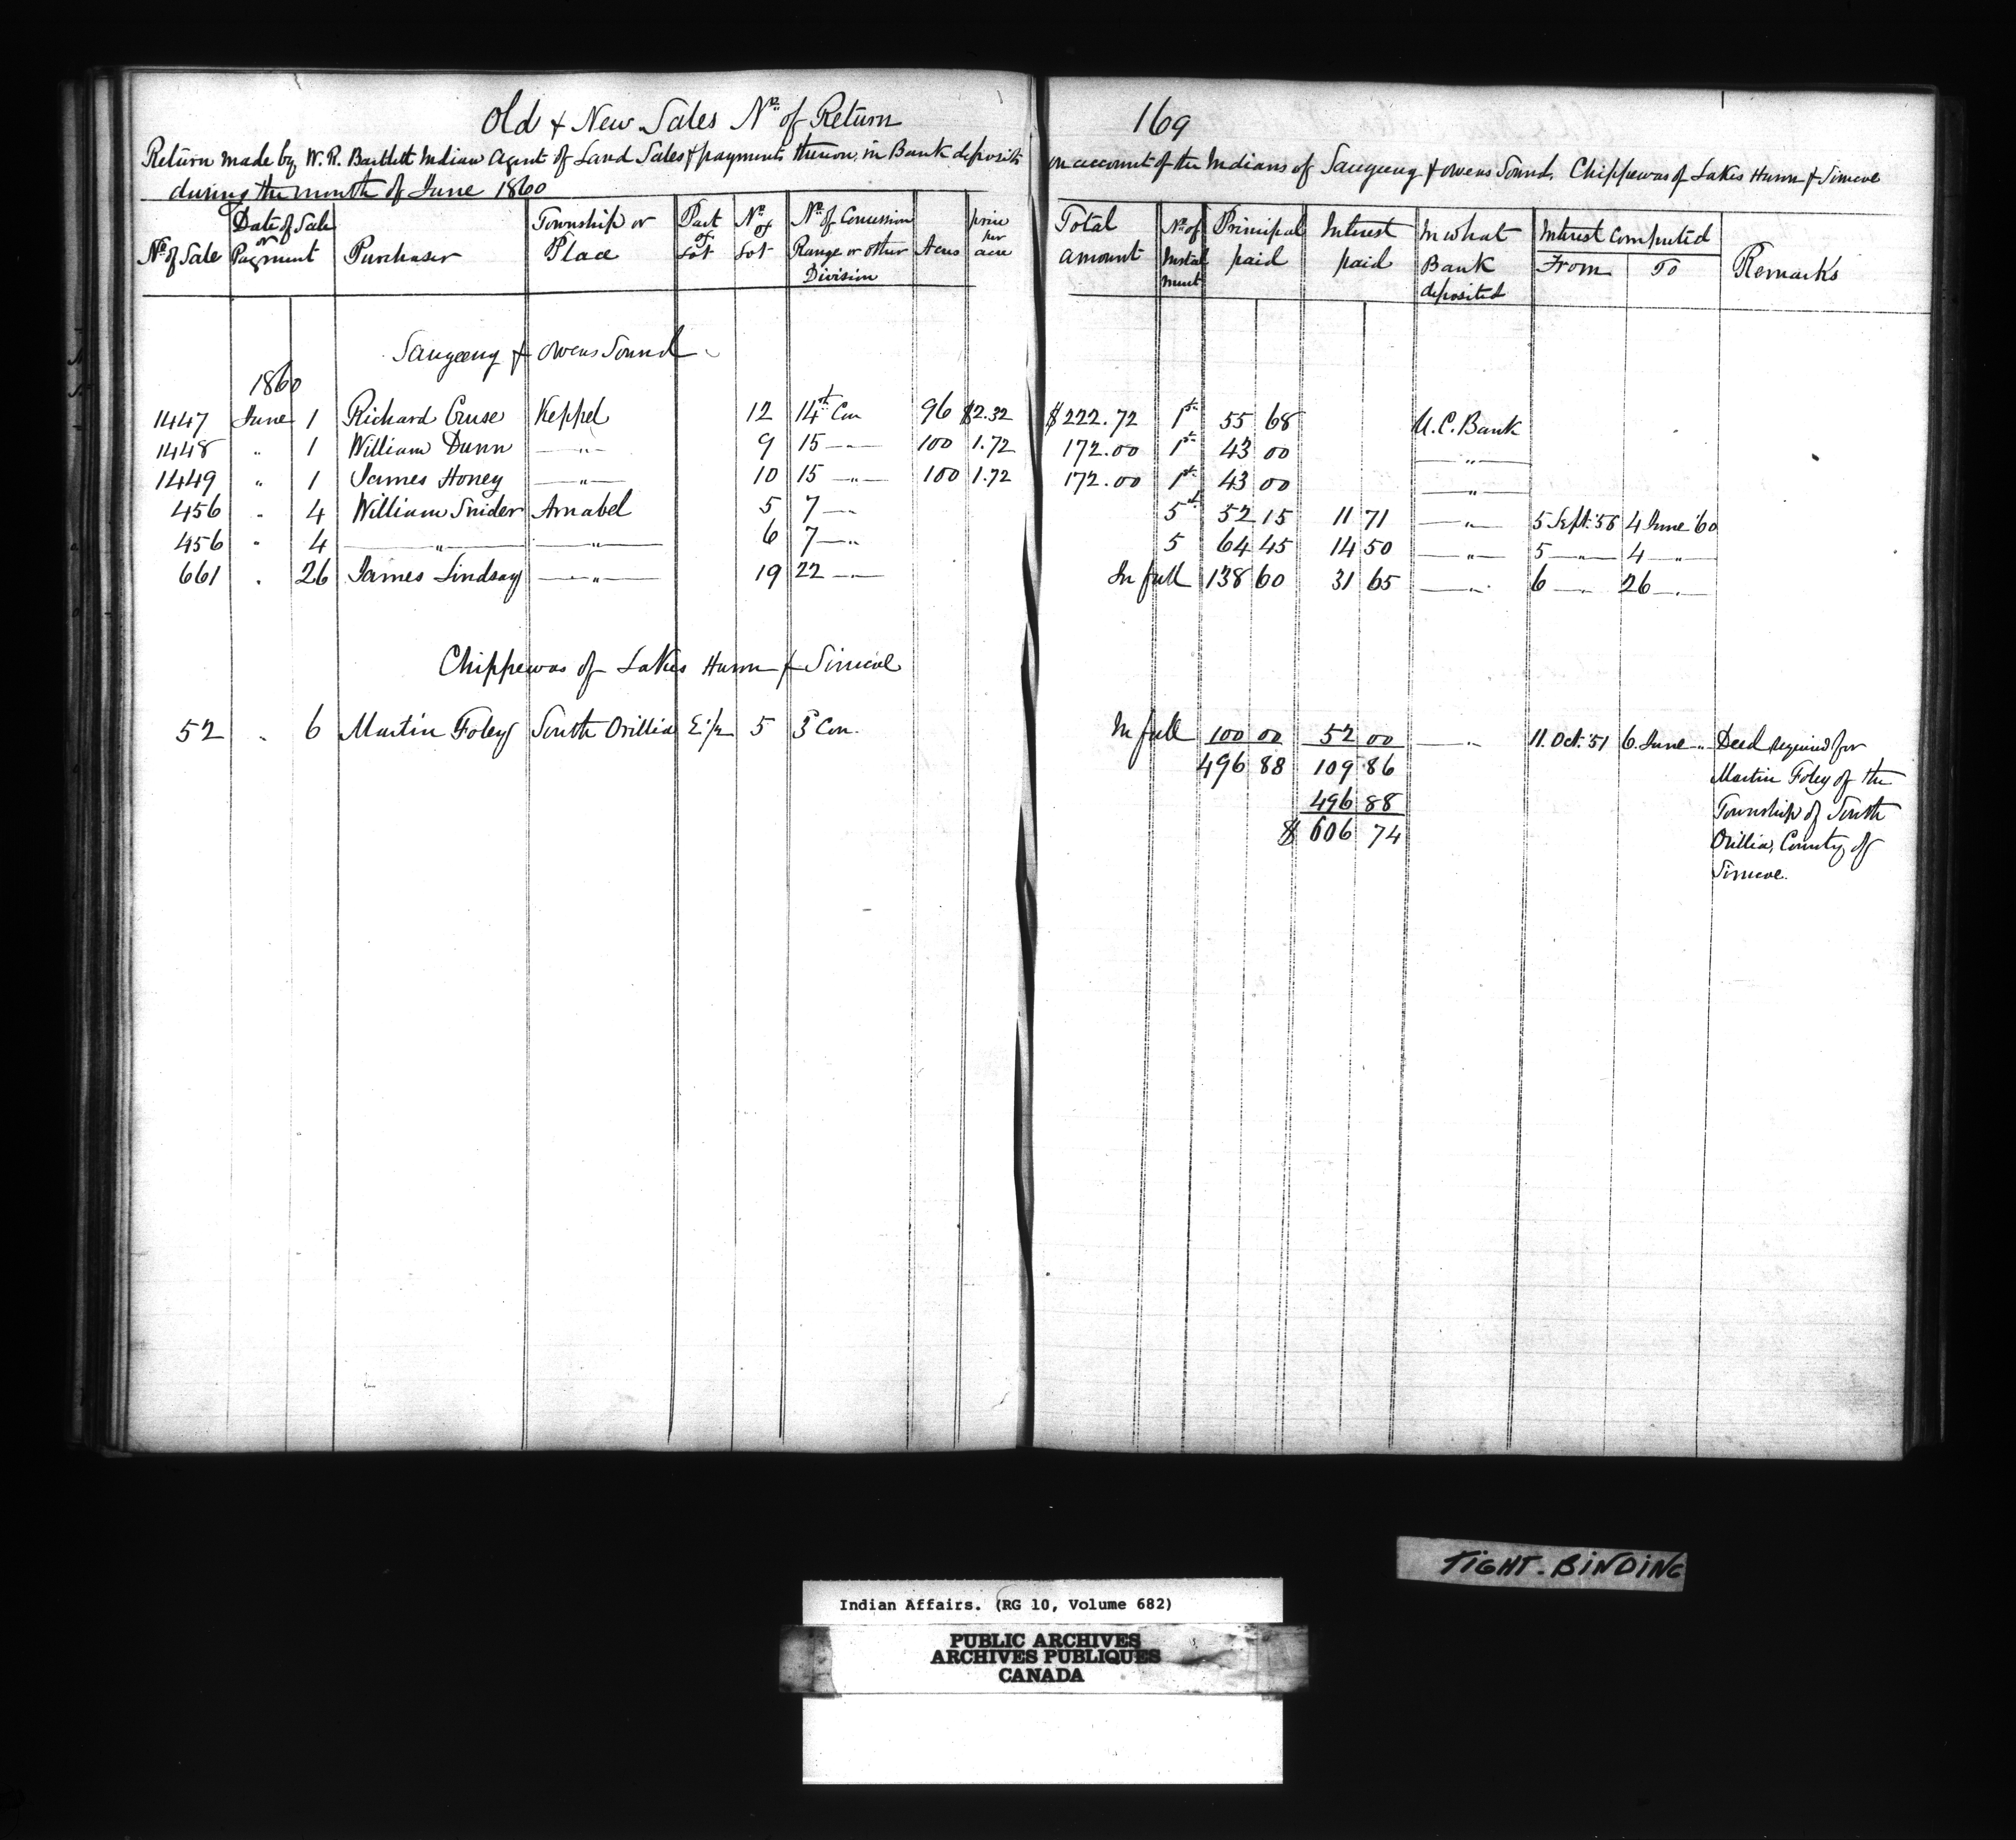 Old & New Sales No. of Return 169
Return made by W. R. Bartlett Indian Agent of Land Sales & payments thereon, in Bank deposits on account of the Indians of Saugeeng & Owens Sound, Chippewas of Lakes Huron & Simcoe
during the month of June 1860
No. of Sale | Date of Sale or Payment | Purchaser | Township or Place | Part of Lot | No. of Lot | No. of Concession Range or other Division | Acres | price per acre | Total amount | No. of Instalment | Principal paid | Interest paid | In what Bank deposited | Interest Computed From | To | Remarks
Saugeeng & Owens Sound
1860
1447 June 1 Richard Cruse Keppel 12 14th Con 96 $2.32 $222.72 1st 55 68 U.C. Bank
1448 " 1 William Dunn —"— 9 15 —"— 100 1.72 172.00 1st 43 00 —"—
1449 " 1 James Honey —"— 10 15 —"— 100 1.72 172.00 1st 43 00 —"—
456 " 4 William Snider Amabel 5 7 —"— 5th 52 15 11 71 —"— 5 Sept. '56 4 June '60
456 " 4 —"— —"— 6 7 —"— 5 64 45 14 50 —"— 5 —"— 4 —"—
661 " 26 James Lindsay —"— 19 22 —"— In full 138 60 31 65 —"— 6 —"— 26 —"—
Chippewas of Lakes Huron & Simcoe
52 " 6 Martin Foley South Orillia E 1/2 5 3d Con. In full 100 00 52 00 —"— 11. Oct. '51 6. June " Deed required for
496 88 109 86 Martin Foley of the
496 88 Township of South
$ 606 74 Orillia, County of
Simcoe.
TIGHT. BINDING
Indian Affairs. (RG 10, Volume 682)
PUBLIC ARCHIVES
ARCHIVES PUBLIQUES
CANADA